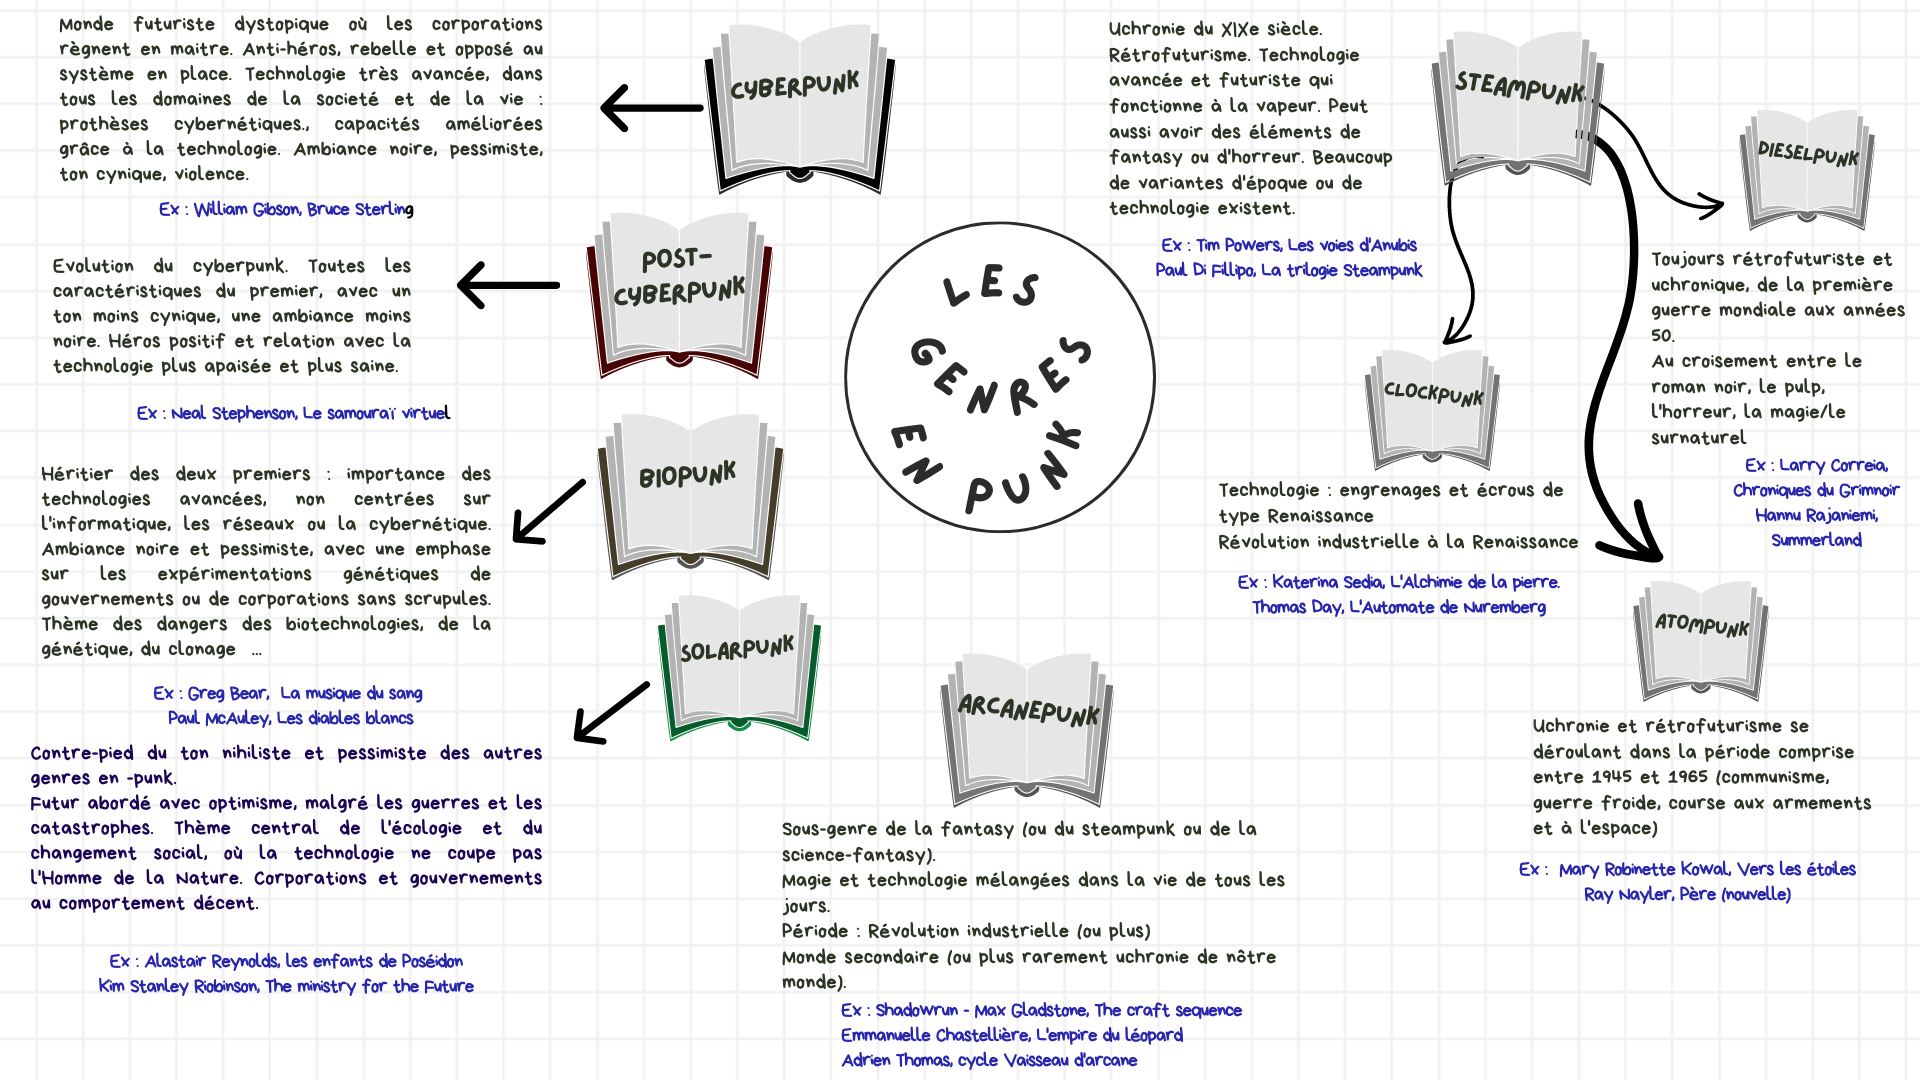 LES
GENRES
EN PUNK
CYBERPUNK
Monde futuriste dystopique où les corporations
règnent en maitre. Anti-héros, rebelle et opposé au
système en place. Technologie très avancée, dans
tous les domaines de la societé et de la vie :
prothèses cybernétiques., capacités améliorées
grâce à la technologie. Ambiance noire, pessimiste,
ton cynique, violence.
Ex : William Gibson, Bruce Sterling
POST-
CYBERPUNK
Evolution du cyberpunk. Toutes les
caractéristiques du premier, avec un
ton moins cynique, une ambiance moins
noire. Héros positif et relation avec la
technologie plus apaisée et plus saine.
Ex : Neal Stephenson, Le samouraï virtuel
BIOPUNK
Héritier des deux premiers : importance des
technologies avancées, non centrées sur
l'informatique, les réseaux ou la cybernétique.
Ambiance noire et pessimiste, avec une emphase
sur les expérimentations génétiques de
gouvernements ou de corporations sans scrupules.
Thème des dangers des biotechnologies, de la
génétique, du clonage ...
Ex : Greg Bear, La musique du sang
Paul McAuley, Les diables blancs
SOLARPUNK
Contre-pied du ton nihiliste et pessimiste des autres
genres en -punk.
Futur abordé avec optimisme, malgré les guerres et les
catastrophes. Thème central de l'écologie et du
changement social, où la technologie ne coupe pas
l'Homme de la Nature. Corporations et gouvernements
au comportement décent.
Ex : Alastair Reynolds, les enfants de Poséidon
Kim Stanley Riobinson, The ministry for the Future
ARCANEPUNK
Sous-genre de la fantasy (ou du steampunk ou de la
science-fantasy).
Magie et technologie mélangées dans la vie de tous les
jours.
Période : Révolution industrielle (ou plus)
Monde secondaire (ou plus rarement uchronie de nôtre
monde).
Ex : Shadowrun - Max Gladstone, The craft sequence
Emmanuelle Chastellière, L'empire du léopard
Adrien Thomas, cycle Vaisseau d'arcane
STEAMPUNK
Uchronie du XIXe siècle.
Rétrofuturisme. Technologie
avancée et futuriste qui
fonctionne à la vapeur. Peut
aussi avoir des éléments de
fantasy ou d'horreur. Beaucoup
de variantes d'époque ou de
technologie existent.
Ex : Tim Powers, Les voies d'Anubis
Paul Di Fillipo, La trilogie Steampunk
CLOCKPUNK
Technologie : engrenages et écrous de
type Renaissance
Révolution industrielle à la Renaissance
Ex : Katerina Sedia, L'Alchimie de la pierre.
Thomas Day, L'Automate de Nuremberg
DIESELPUNK
Toujours rétrofuturiste et
uchronique, de la première
guerre mondiale aux années
50.
Au croisement entre le
roman noir, le pulp,
l'horreur, la magie/le
surnaturel
Ex : Larry Correia,
Chroniques du Grimnoir
Hannu Rajaniemi,
Summerland
ATOMPUNK
Uchronie et rétrofuturisme se
déroulant dans la période comprise
entre 1945 et 1965 (communisme,
guerre froide, course aux armements
et à l'espace)
Ex : Mary Robinette Kowal, Vers les étoiles
Ray Nayler, Père (nouvelle)